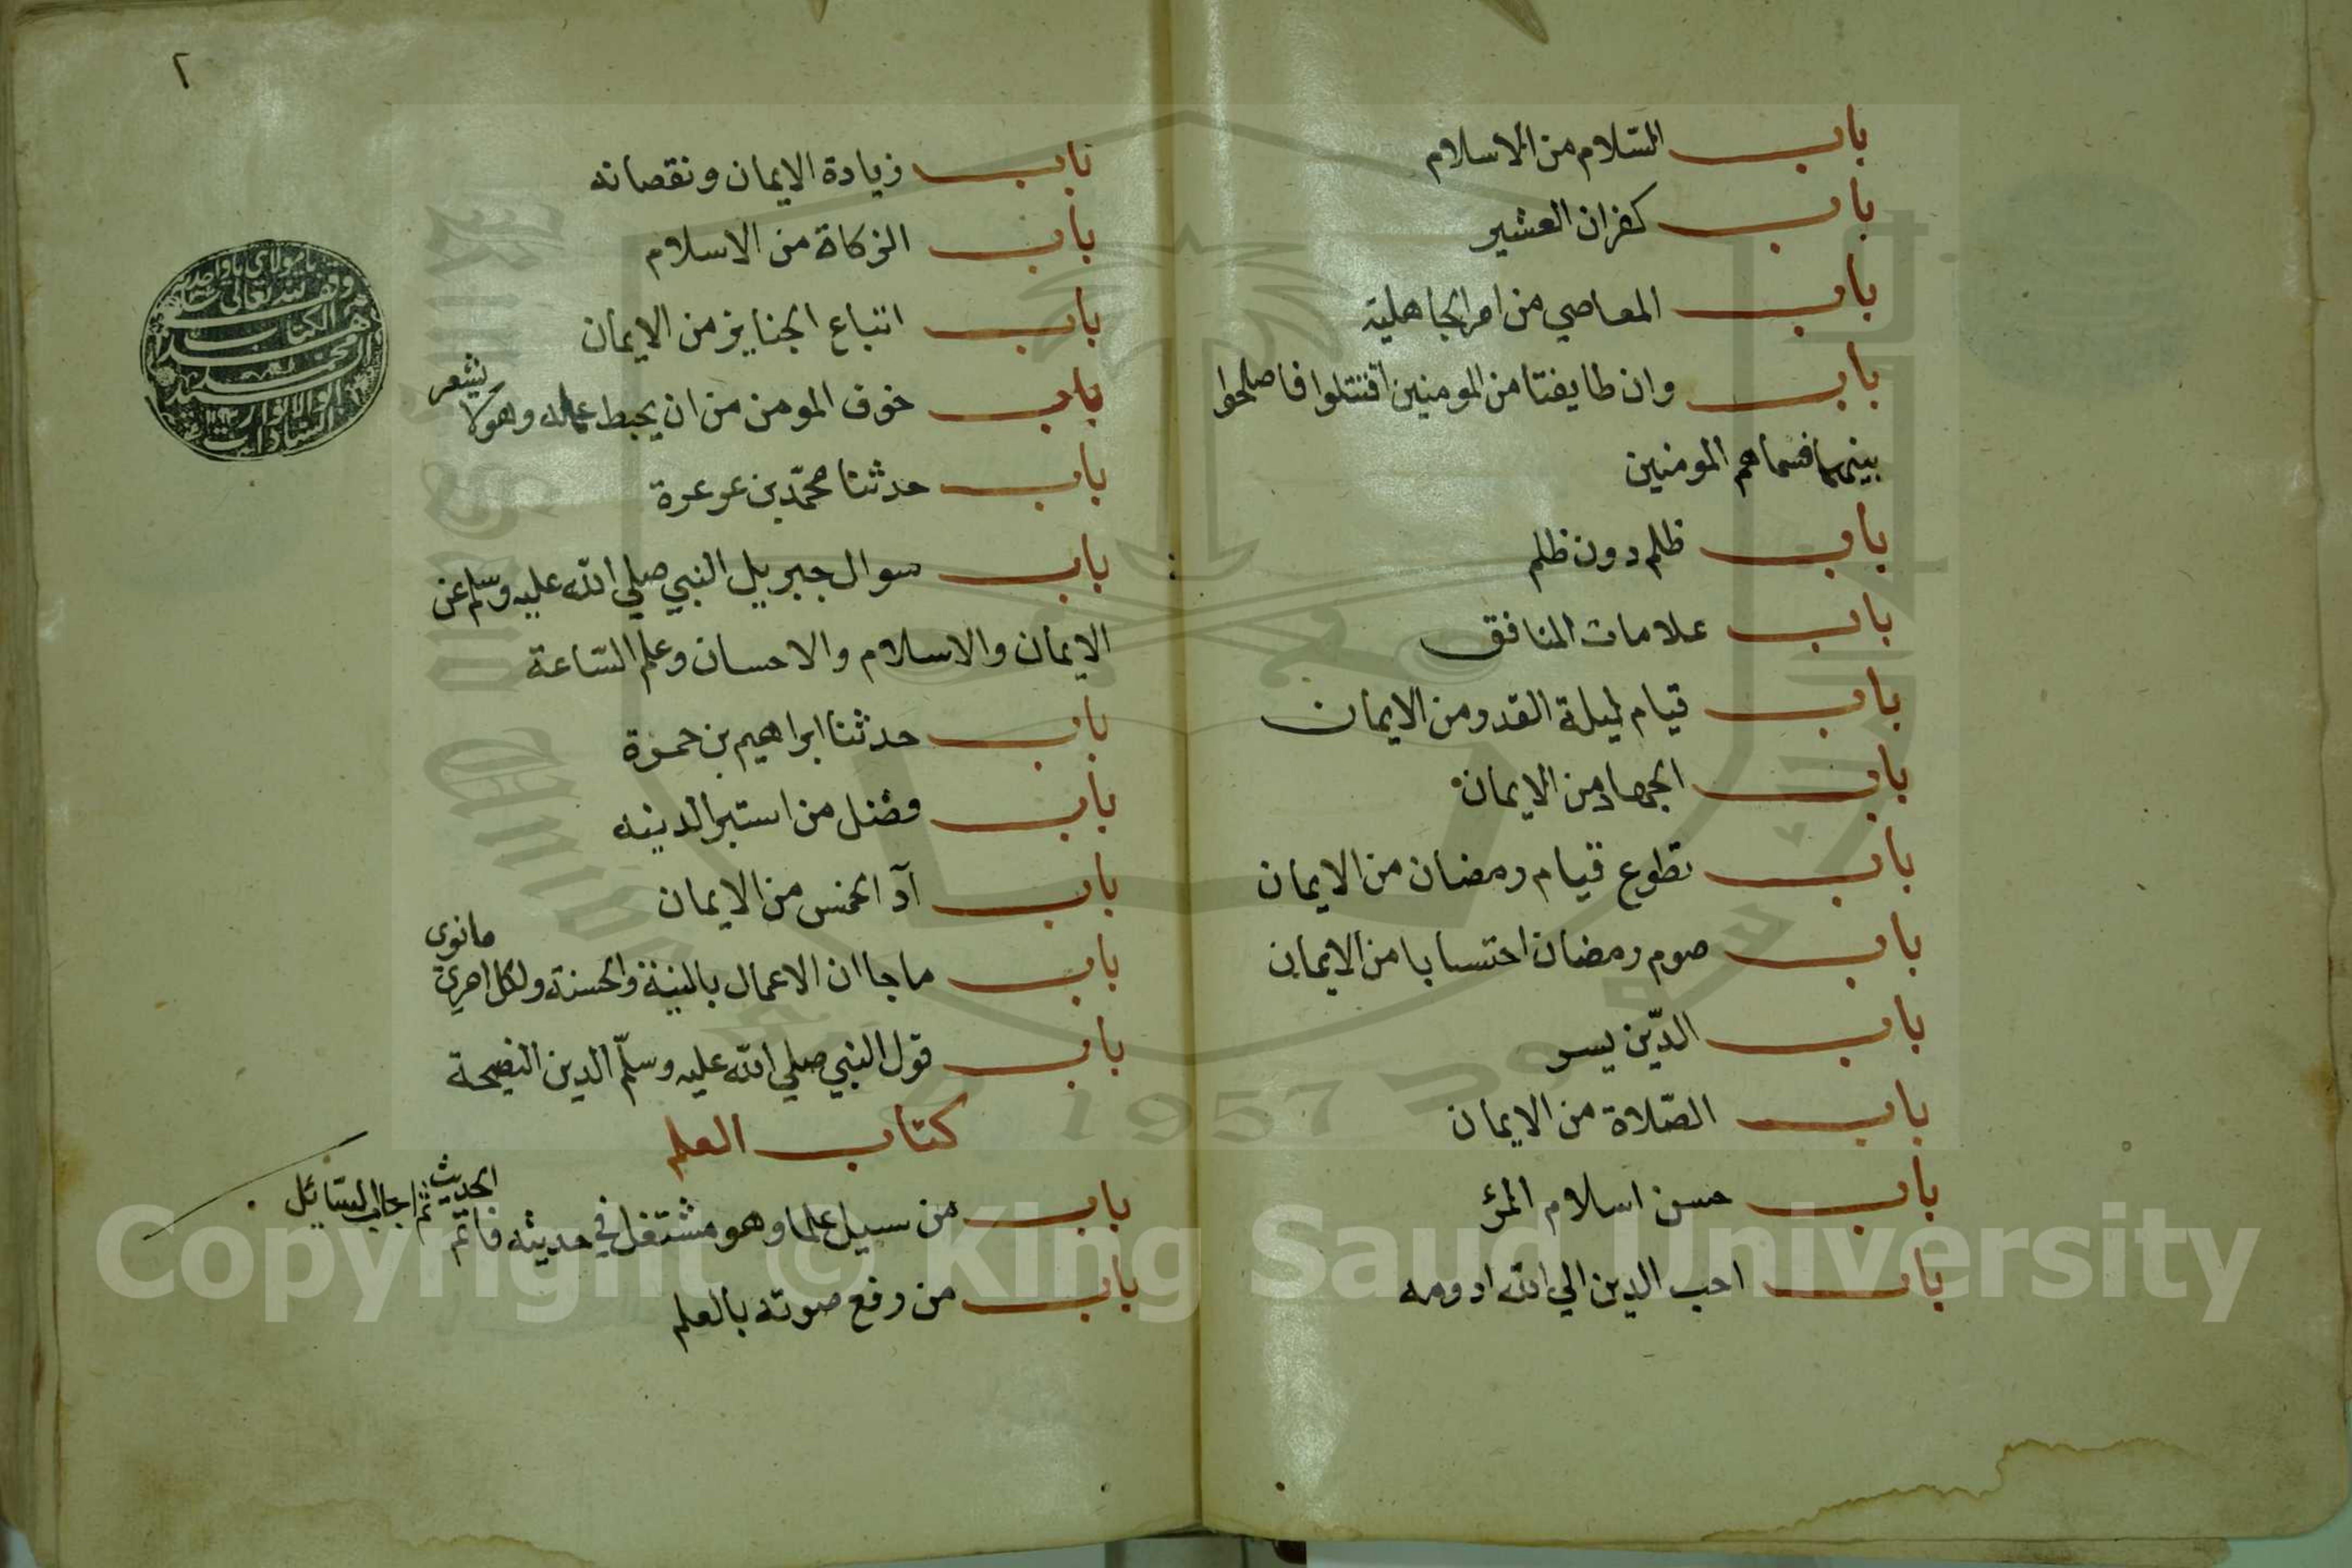 باب السّلام من الاسلام
باب كفران العشير
باب المعاصي من امر الجاهلية
باب وان طايفتا من المومنين اقتتلوا فاصلحوا
بينهما فسماهم المومنين
باب ظلم دون ظلم
باب علامات المنافق
باب قيام ليلة القدر من الايمان
باب الجهاد من الايمان
باب تطوع قيام رمضان من الايمان
باب صوم رمضان احتسابا من الايمان
باب الدّين يسر
باب الصّلاة من الايمان
باب حسن اسلام المرء
باب احب الدين الي الله ادومه
٢
باب زيادة الايمان ونقصانه
باب الزكاة من الاسلام
باب اتباع الجنايز من الايمان
باب خوف المومن من ان يحبط عمله وهو لا يشعر
باب حدثنا محمّد بن عرعرة
باب سوال جبريل النبي صلي الله عليه وسلم عن
الايمان والاسلام والاحسان وعلم السّاعة
باب حدثنا ابراهيم بن حمزة
باب فضل من استبرا لدينه
باب آدا الخمس من الايمان
باب ما جا ان الاعمال بالنية والحسنة ولكل امرئ ما نوى
باب قول النبي صلي الله عليه وسلّم الدين النصيحة
كتاب العلم
باب من سيل علما وهو مشتغل في حديثه فاتم الحديث ثم اجاب السّائل
باب من رفع صوته بالعلم
وقف لله تعالى
الكتاب
محمد
King Saud University
1957
Copyright © King Saud University